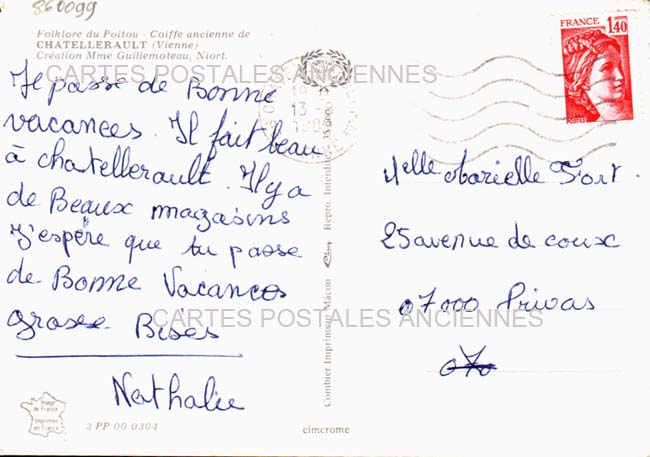 860099
Folklore du Poitou - Coiffe ancienne de
CHATELLERAULT (Vienne)
Création Mme Guillemoteau, Niort.
CARTES POSTALES ANCIENNES
Je passe de Bonne
vacances. Il fait beau
à chatellerault. Il y a
de Beaux magasins
J'espère que tu passe
de Bonne Vacances
grosse Bises
Nathalie
Image
de France
Imprimée
en France
3 PP 00 0304
Combier Imprimeur Mâcon
Repro. Interdite
cimcrome
FRANCE
1,40
13
Mlle Marielle Fort.
25 avenue de coux
07000 Privas
CARTES POSTALES ANCIENNES
070